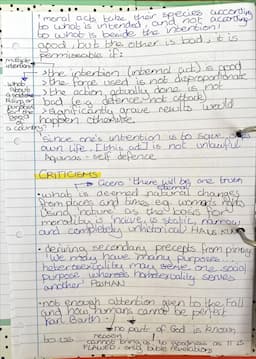 'moral acts take their species according
to what is intended, and not according
to what is beside the intention'
good, but the other is bad, it is
permissable if:
multiple
intentions
> the intention (internal act) is good
> the force used is not disproportionate
> the action actually done is not
bad (e.g. defence-not attack)
> significantly grave results would
happen otherwise.
what
about
a soldier
killing on
purpose
a country?
'Since one's intention is to save
own life, [this act] is not unlawful'
Aquinas - self defence
CRITICISMS
→ Cicero 'there will be one
eternal
• what is deemed natural changes
from places and times e.g. women's rights
Using 'nature' as the basis for
morality is 'naive, is static, narrow
and completely unhistorical' HANS KUNG
• deriving secondary precepts from primary
'We may have many purposes...
heterosexuality may serve one social
purpose whereas homosexuality serves
another'
• not enough attention given to the Fall
and how humans cannot be perfect
Karl Barth -
'no part of God is known
to us'
reason
cannot bring us to goodness as it is
FLAWED. only bible revelations